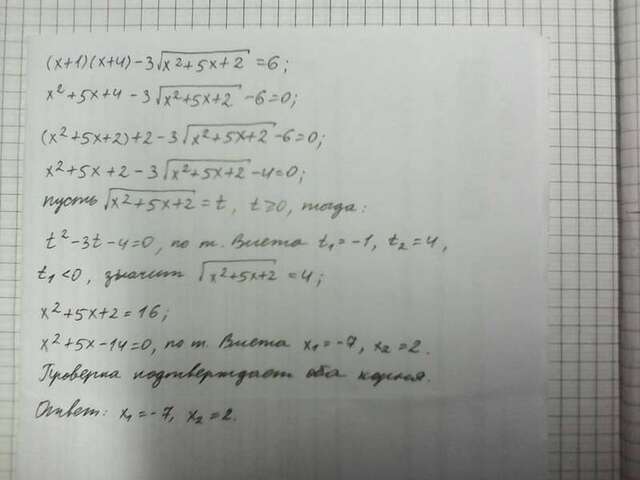 (x+1)(x+4)-3√(x²+5x+2) =6;
x²+5x+4-3√(x²+5x+2) -6=0;
(x²+5x+2)+2-3√(x²+5x+2)-6=0;
x²+5x+2-3√(x²+5x+2)-4=0;
пусть √(x²+5x+2)=t, t≥0, тогда:
t²-3t-4=0, по т. Виета t₁=-1, t₂=4,
t₁<0, значит √(x²+5x+2) =4;
x²+5x+2=16;
x²+5x-14=0, по т. Виета x₁=-7, x₂=2.
Проверка подтверждает оба корня.
Ответ: x₁=-7, x₂=2.